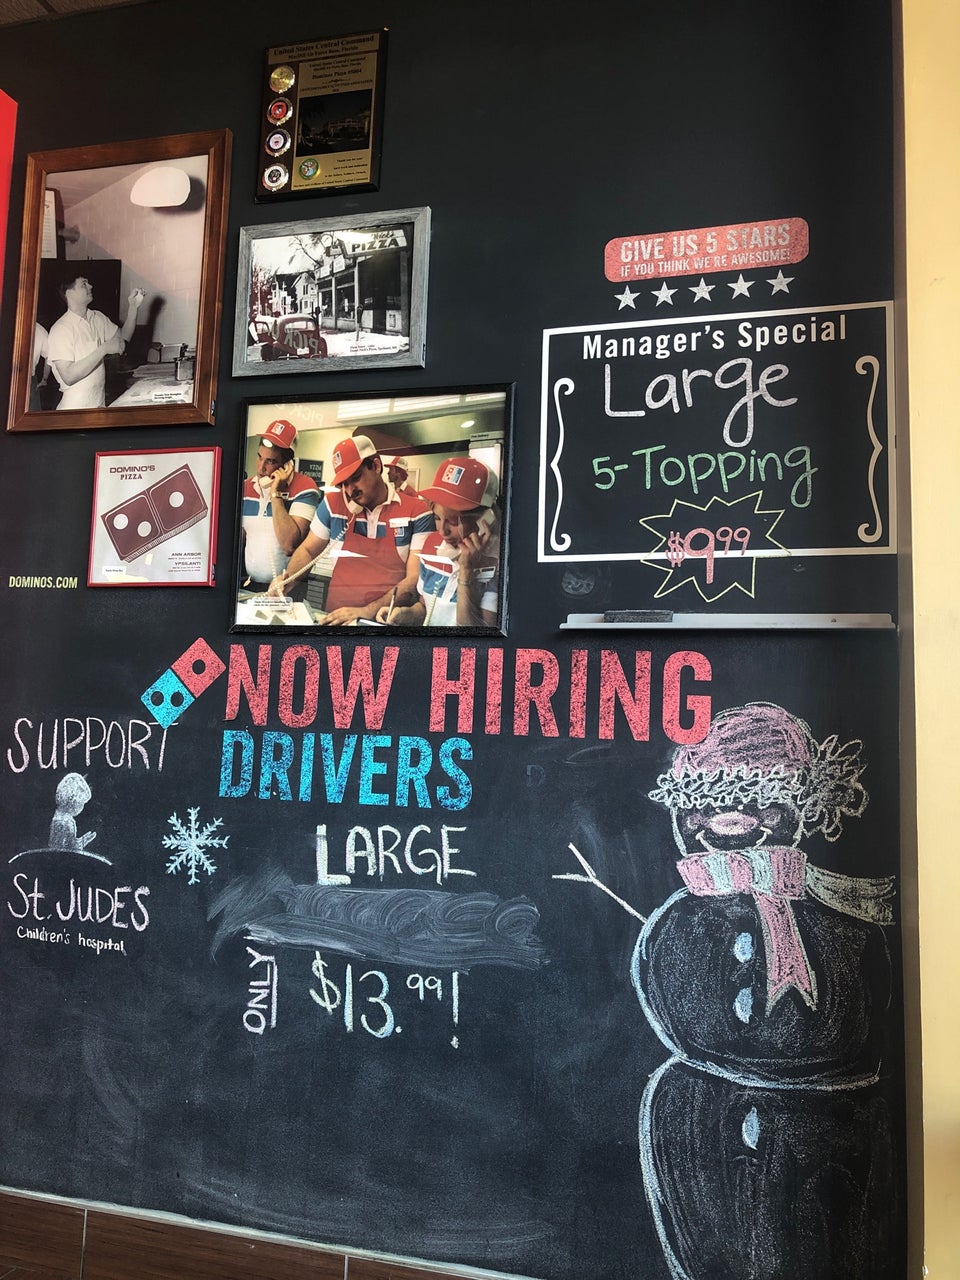 United States Central Command
MacDill Air Force Base, Florida
Domino's Pizza #5004
Nick's
PIZZA
DOMINO'S
PIZZA
ANN ARBOR
YPSILANTI
DOMINOS.COM
GIVE US 5 STARS
IF YOU THINK WE'RE AWESOME!
Manager's Special
Large
5-Topping
$9.99
NOW HIRING
DRIVERS
SUPPORT
St. JUDES
Children's hospital
LARGE
ONLY
$13.99!